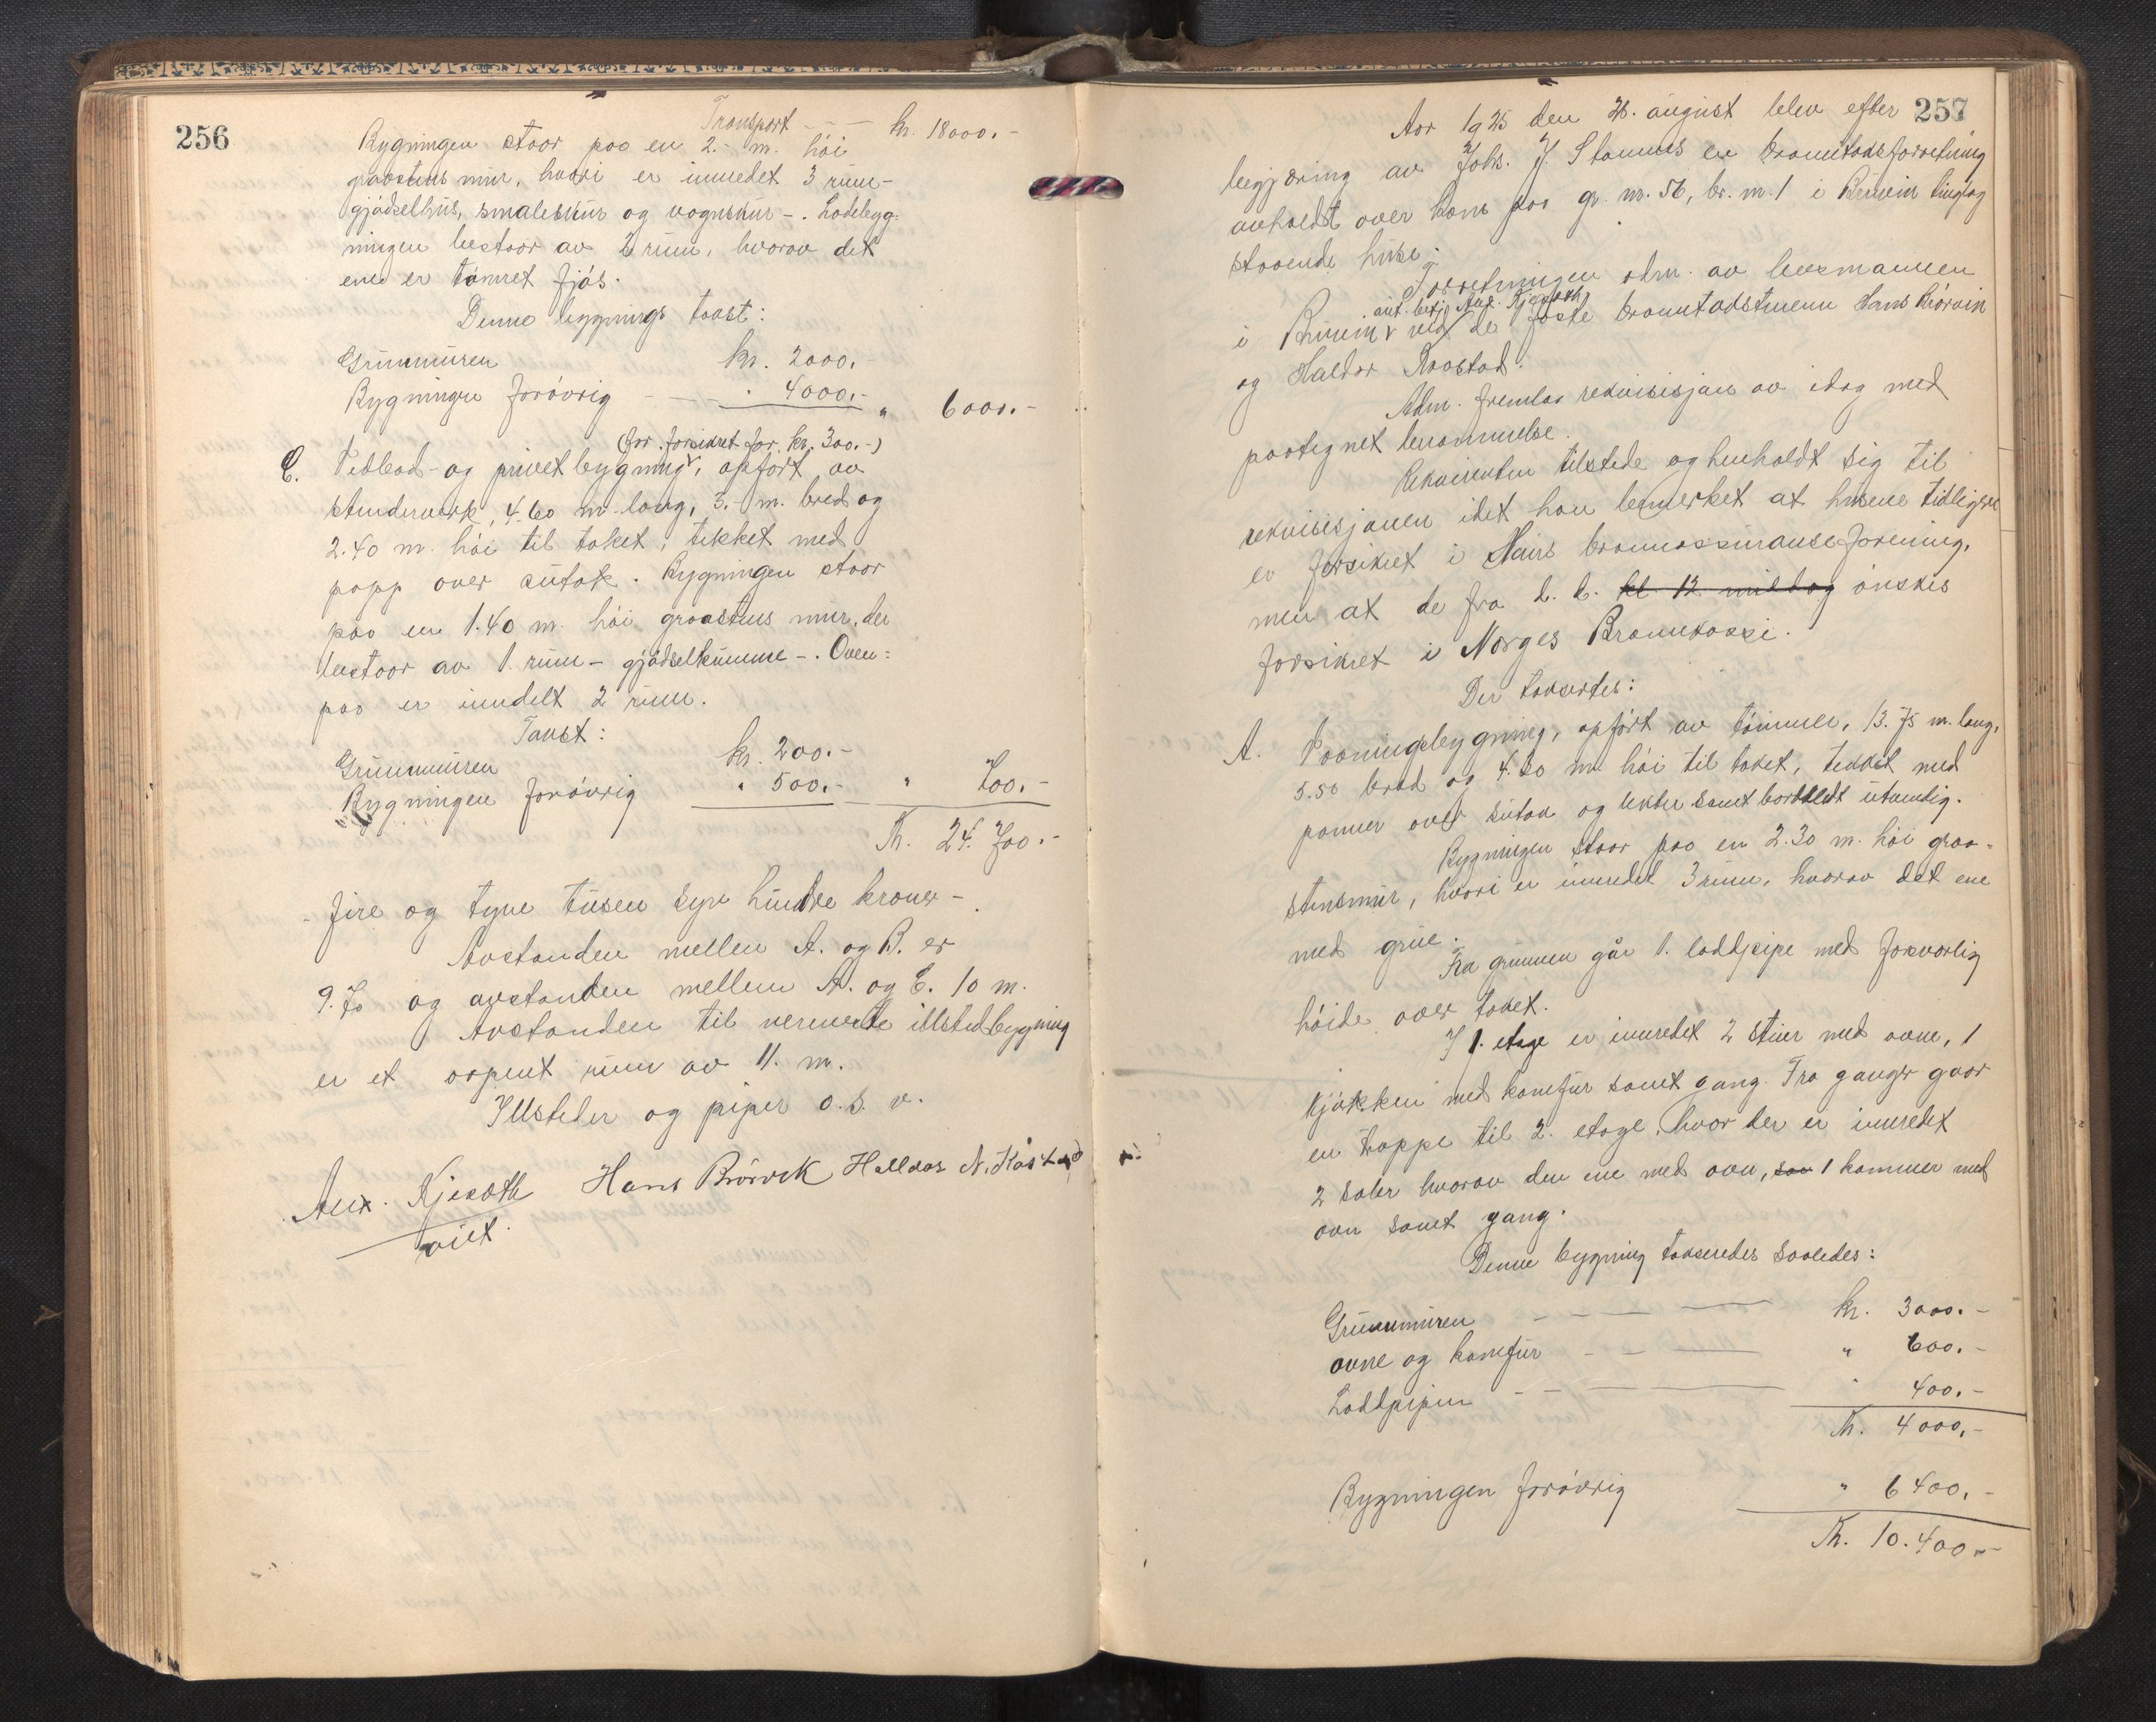 256
Transport - - kr. 18000.-
Bygningen staar paa en 2.- m. høi
graastens mur, hvori er innredet 3 rum -
gjødselhus, smaleskur og vognskur -. Lødebyg-
ningen bestaar av 2 rum, hvorav det
ene er tømret fjøs.
Denne bygnings takst:
Grunnmuren kr. 2000.-
Bygningen forøvrig - " 4000.- " 6000.-
(før forsikret for kr. 300.-)
C. Vedbod- og privetbygning, opført av
stenderverk, 4.60 m. lang, 3.- m. bred og
2.40 m. høi til taket; tekket med
papp over sutak. Bygningen staar
paa en 1.40 m. høi graastens mur, der
bestaar av 1. rum - gjødselkumme -. Oven=
paa er inndelt 2 rum.
Takst:
Grunnmuren kr. 200.-
Bygningen forøvrig " 500.- " 700.-
Kr. 24.700.-
- fire og tyve tusen syv hundre kroner -
Avstanden mellem A. og B. er
9.70 og avstanden mellem A. og C. 10 m.
Avstanden til nermeste illstedbygning
er et aapent rum av 11. m.
Illsteder og piper o.s.v.
Aux. Kjerøth Hans Brørvik Halldor N. Råstad
aut.
257
Aar 1925 den 26. august blev efter
begjæring av Johs. J. Stamnes en branntakstforretning
avholdt over hans paa gr. nr. 56, br. nr. 1 i Bruvik tinglag
staaende huse.
Forretningen adm. av lensmannen
aut. betj. Aux. Kjerøth
i Bruvik v ved de faste branntakstmenn Hans Brørvik
og Haldor Raastad.
Adm. fremla rekvisisjon av idag med
paategnet berammelse.
Rekvirenten tilstede og henholdt sig til
rekvisisjonen idet han bemerket at husene tidligere
er forsikret i Haus brannassuranseforening,
men at de fra d. d. kl. 12 middag ønskes
forsikret i Norges Brannkasse.
Der taksertes:
A. Vaaningsbygning, opført av tømmer, 13.75 m. lang,
5.50 bred og 4.20 m. høi til taket, tekket med
panner over sutak og lekter samt bordkledt utvendig.
Bygningen staar paa en 2.30 m. høi graa-
stensmur, hvori er innredet 3 rum, hvorav det ene
med grue.
Fra grunnen går 1. loddpipe med forsvarlig
høide over taket.
I 1. etage er innredet 2 stuer med ovne, 1
kjøkken med komfur samt gang. Fra gangen gaar
en trappe til 2. etage, hvor der er innredet
2 saler hvorav den ene med ovn, sam 1 kammer med
ovn samt gang.
Denne bygning takseredes saaledes:
Grunnmuren - - - kr. 3000.-
ovne og komfur - - - " 600.-
Loddpipen - - - " 400.-
Kr. 4000.-
Bygningen forøvrig " 6400.-
Kr. 10.400.-